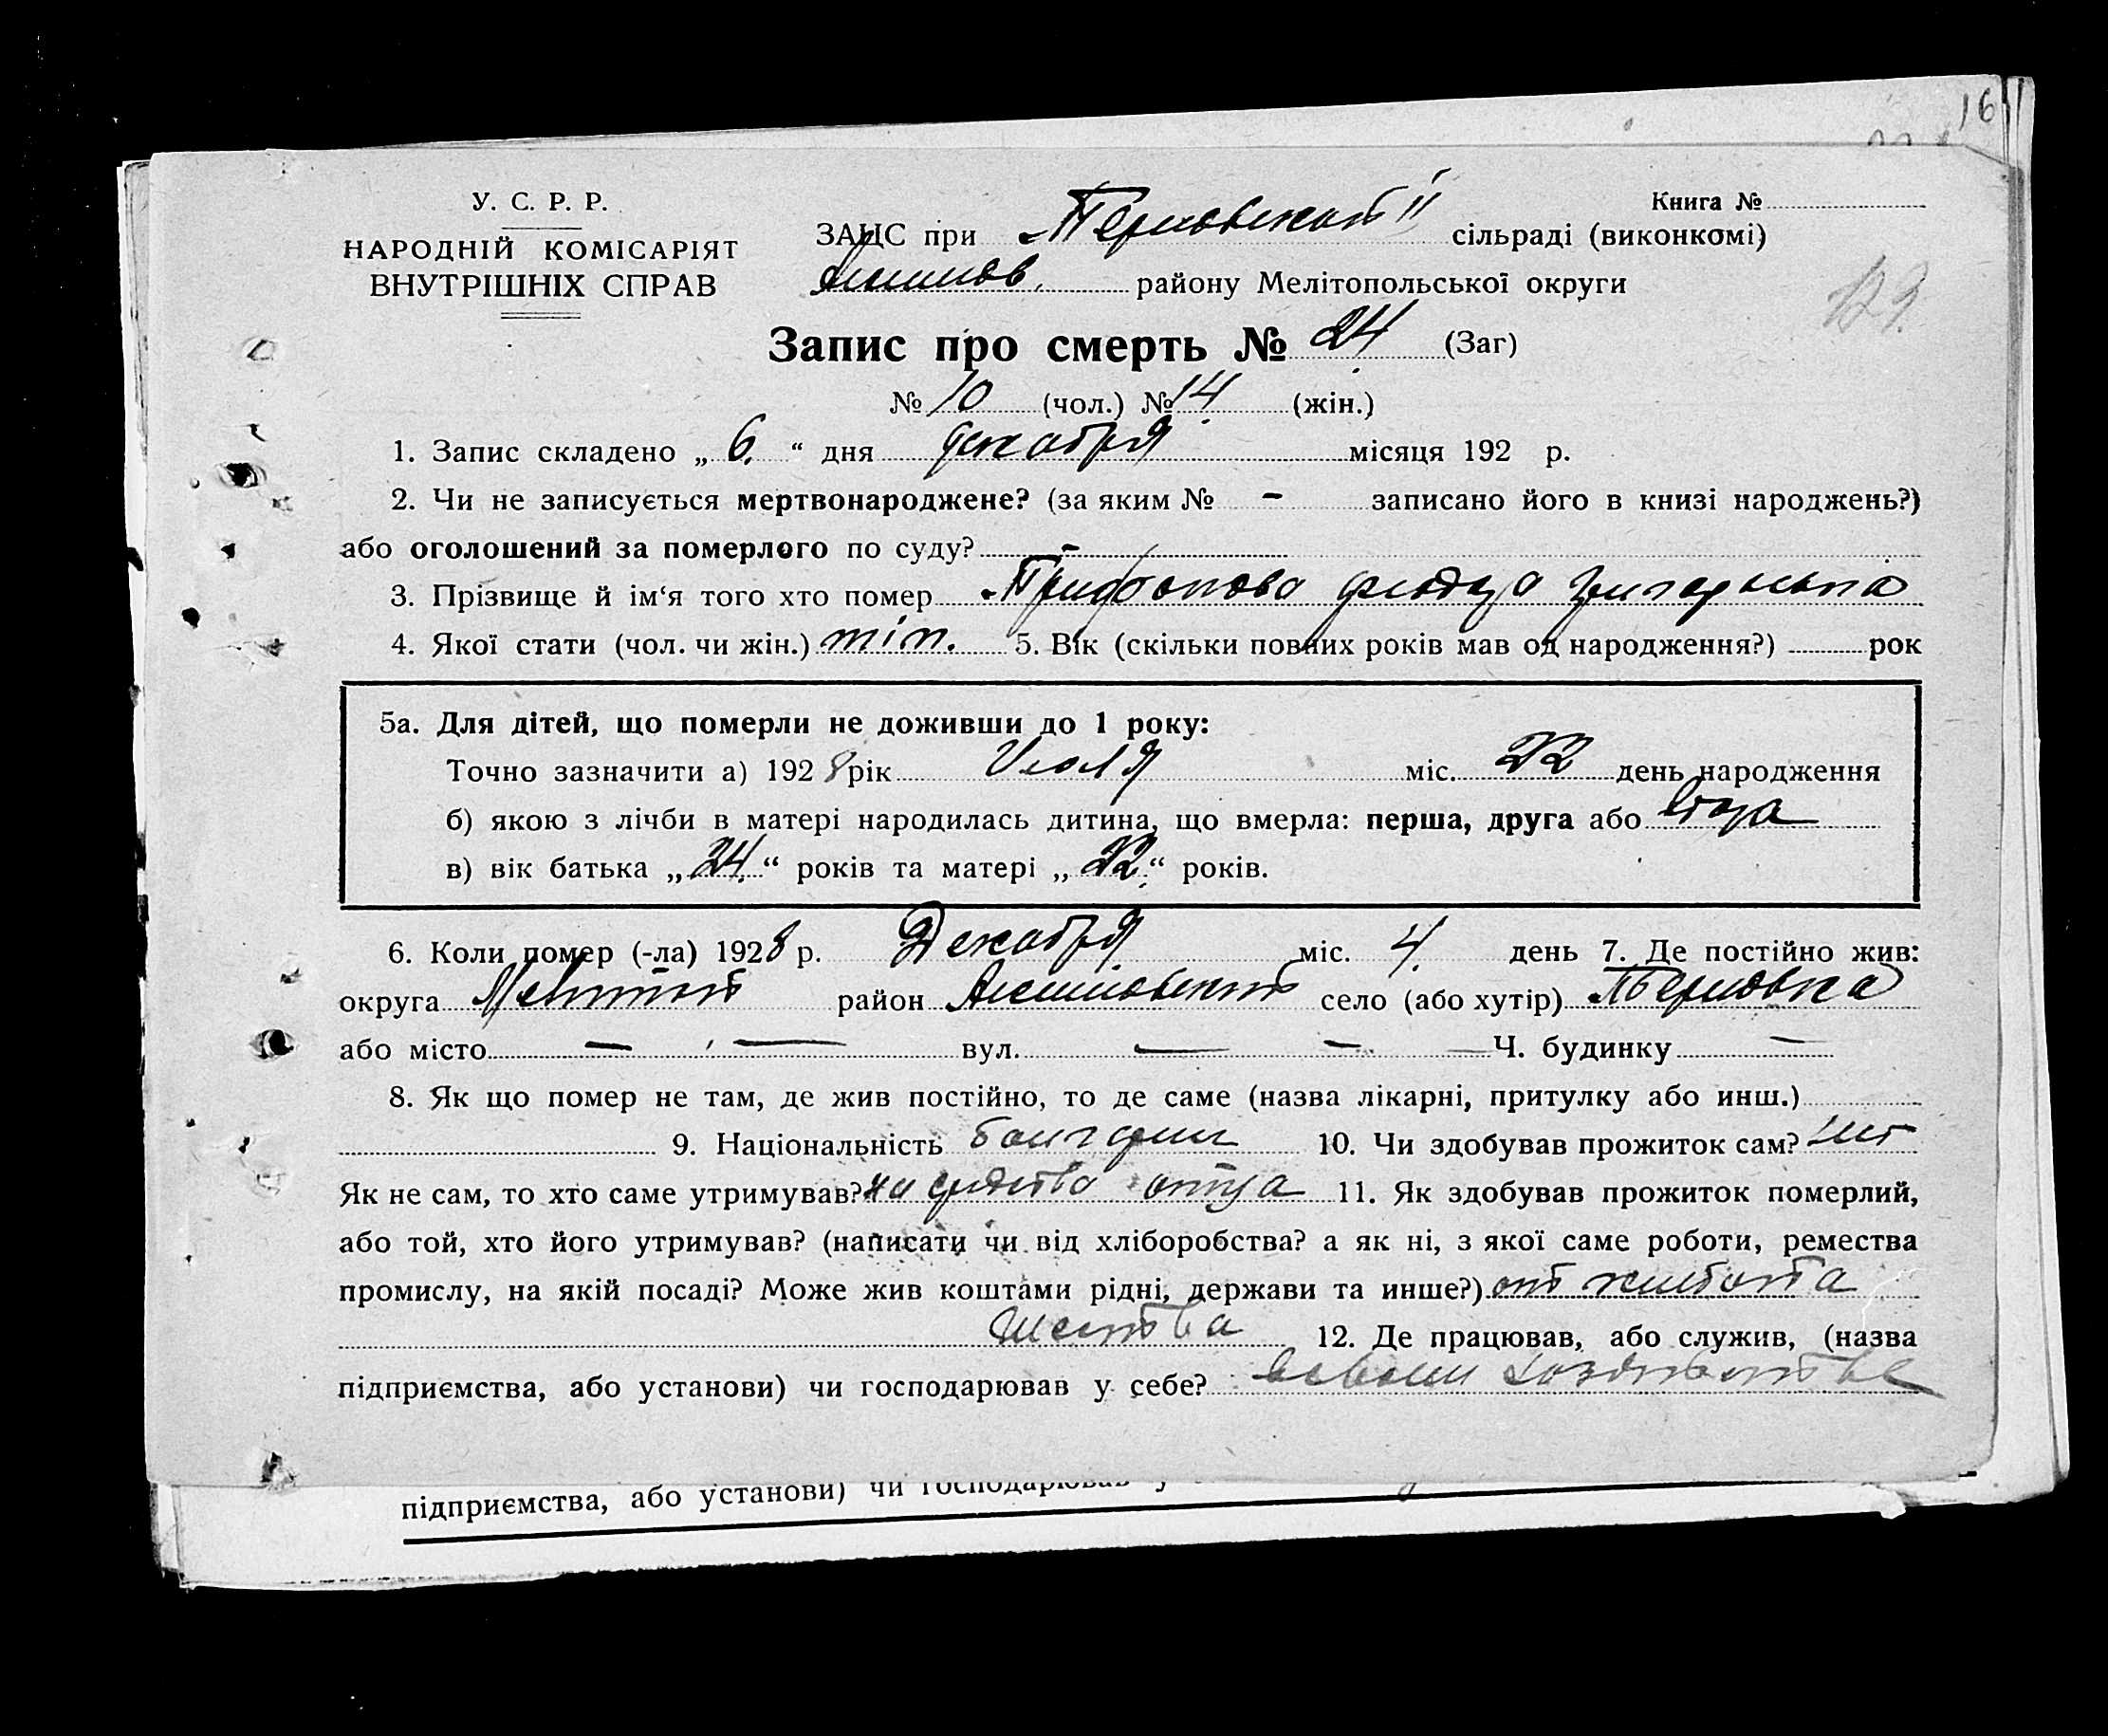 16
У. С. Р. Р.
НАРОДНІЙ КОМІСАРІЯТ
ВНУТРІШНІХ СПРАВ
Книга №
ЗАЦС при сільраді (виконкомі)
району Мелітопольської округи
Запис про смерть № 24 (Заг)
№ 10 (чол.) № 14 (жін.)
1. Запис складено „ 6. “ дня декабря місяця 192 р.
2. Чи не записується мертвонароджене? (за яким № - записано його в книзі народжень?)
або оголошений за померлого по суду? -
3. Прізвище й ім‘я того хто помер Трифонова
4. Якої стати (чол. чи жін.) 5. Вік (скільки повних років мав од народження?) рок
5а. Для дітей, що померли не доживши до 1 року:
Точно зазначити а) 1928 рік Июля міс. 22 день народження
б) якою з лічби в матері народилась дитина, що вмерла: перша, друга або
в) вік батька „ 24. “ років та матері „ 22. “ років.
6. Коли помер (-ла) 1928 р. Декабря міс. 4. день 7. Де постійно жив:
округа Мелитоп район село (або хутір)
або місто — — вул. — — Ч. будинку —
8. Як що помер не там, де жив постійно, то де саме (назва лікарні, притулку або инш.)
9. Національність болгарин 10. Чи здобував прожиток сам? нет
Як не сам, то хто саме утримував? на средства отца 11. Як здобував прожиток померлий,
або той, хто його утримував? (написати чи від хліборобства? а як ні, з якої саме роботи, ремества
промислу, на якій посаді? Може жив коштами рідні, держави та инше?) от
12. Де працював, або служив, (назва
підприємства, або установи) чи господарював у себе? в своем хозяйстве
підприємства, або установи) чи господарював у